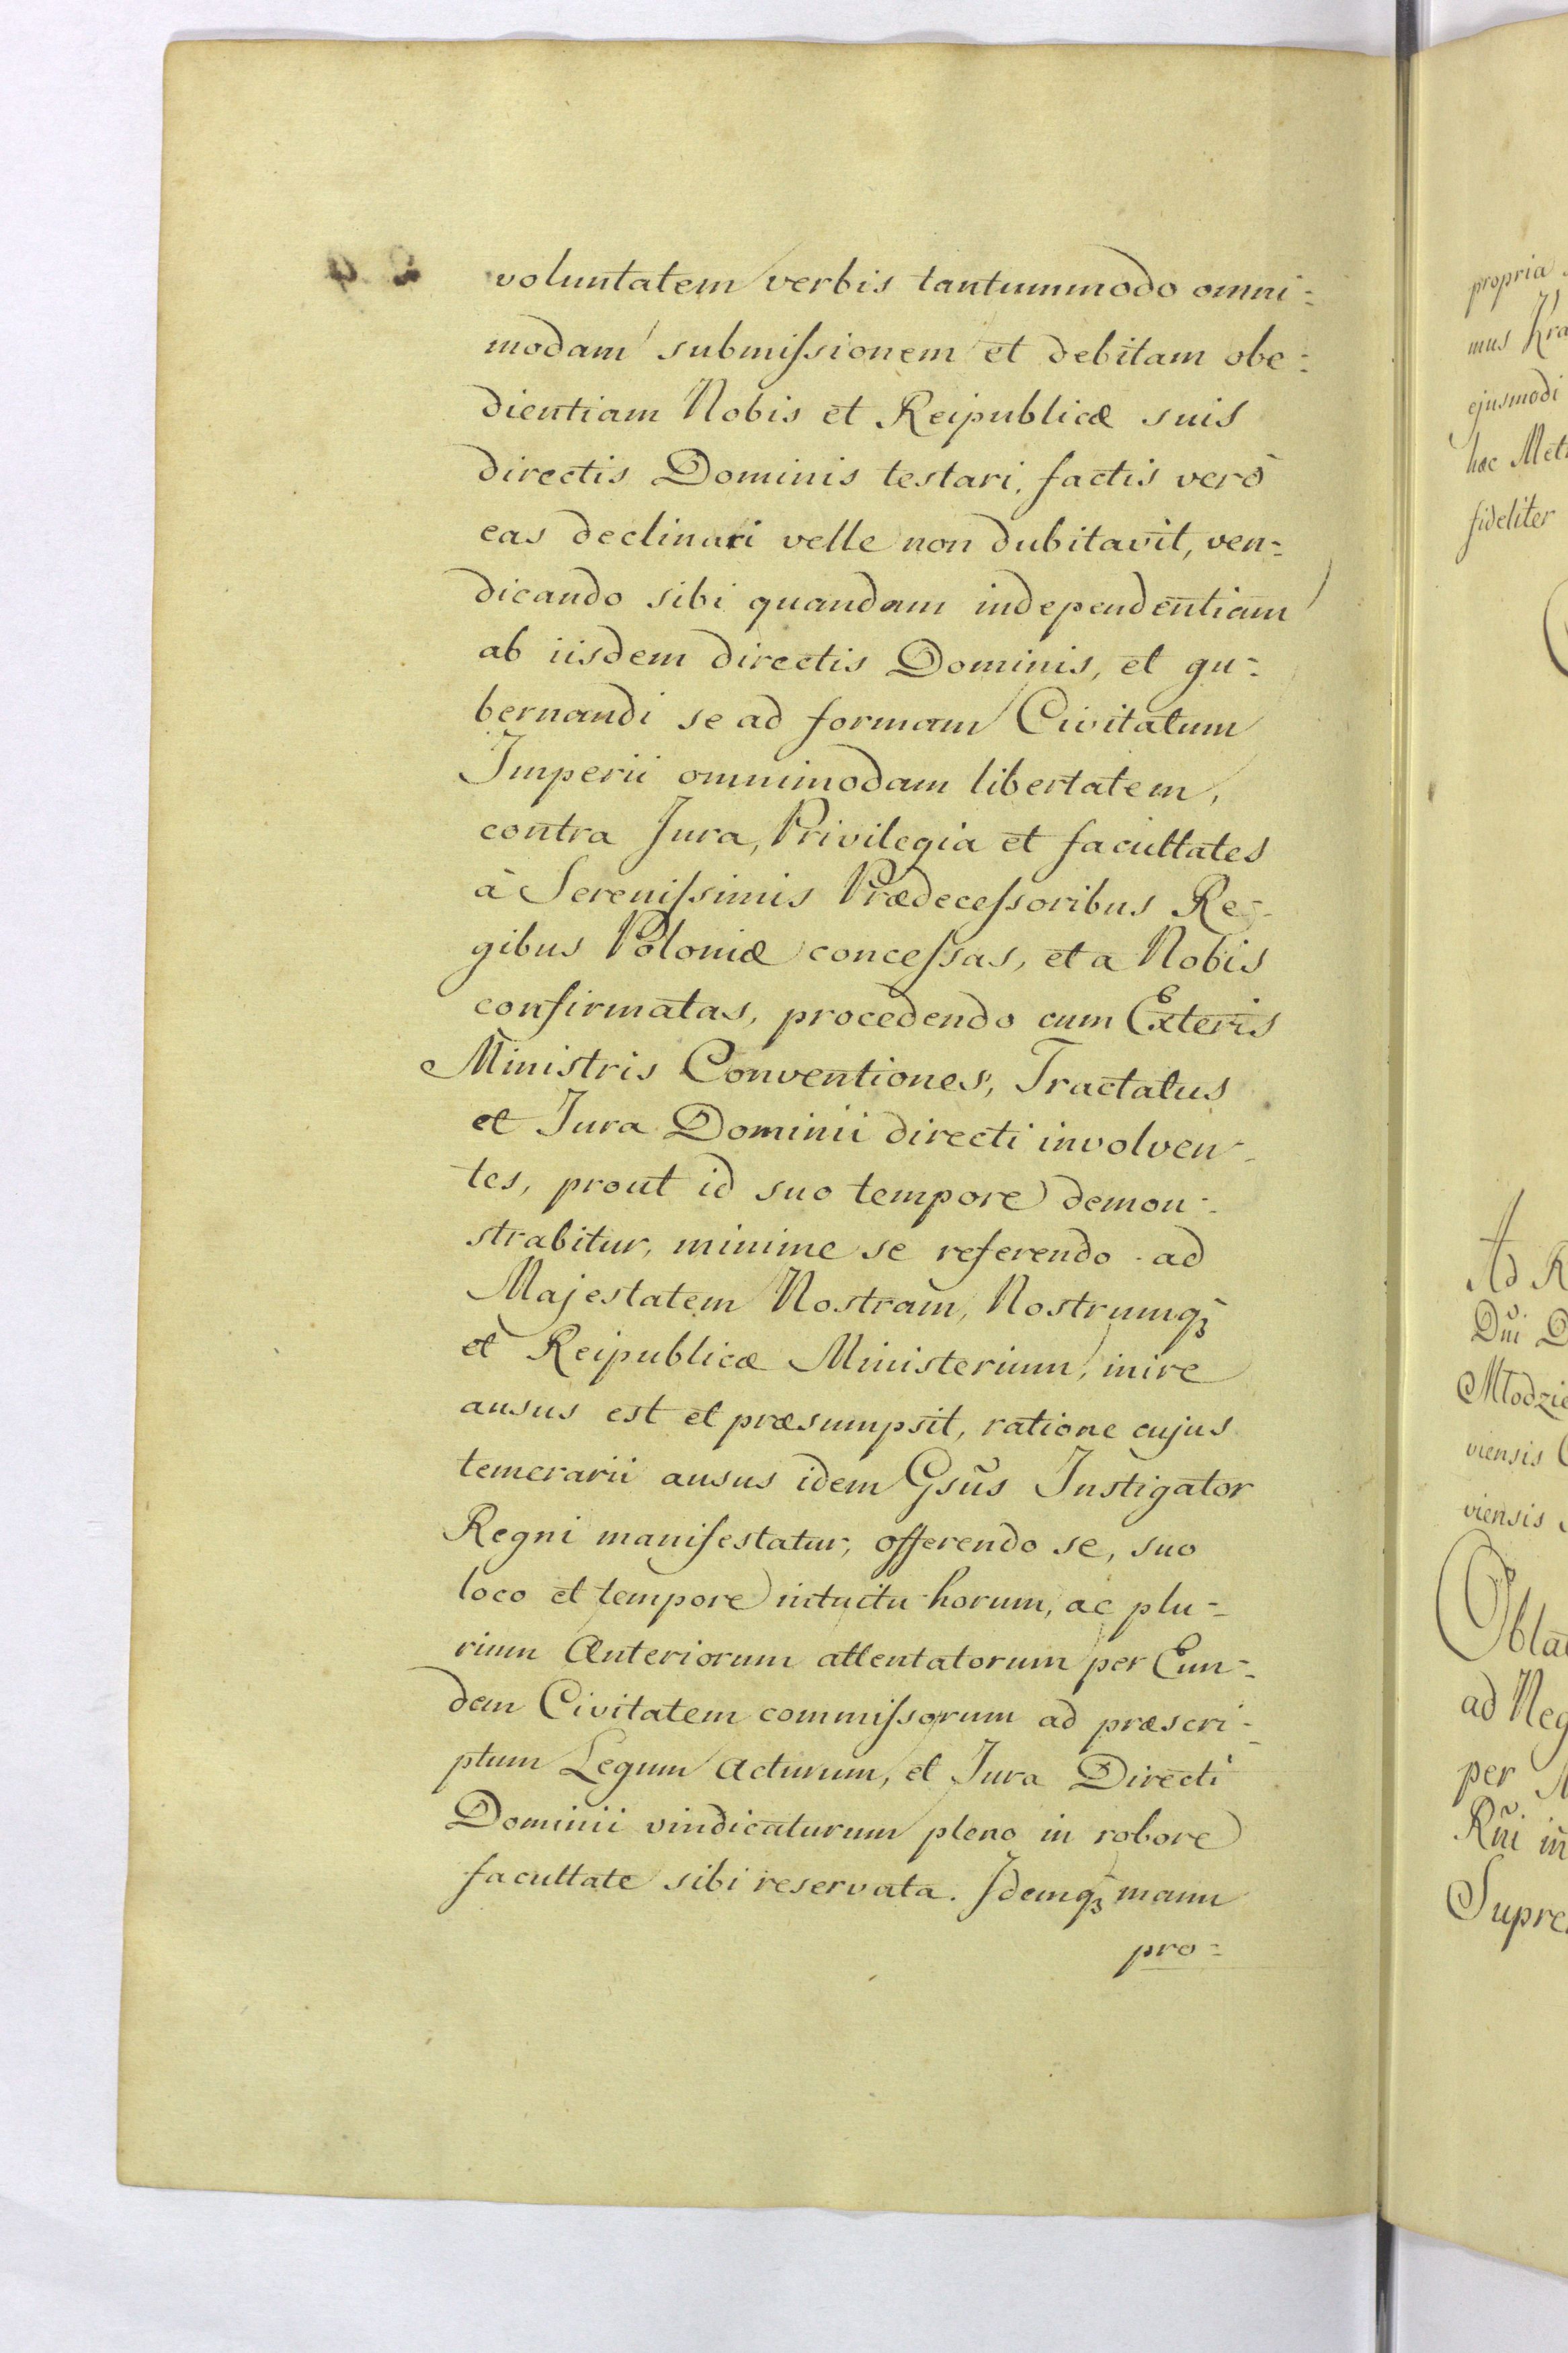 voluntatem verbis tantummodo omni=
modam submissionem et debitam obe=
dientiam Nobis et Reipublicæ suis
directis Dominis testari, factis verò
eas declinari velle non dubitavit, ven=
dicando sibi quandam independentiam
ab iisdem directis Dominis, et gu=
bernandi se ad formam Civitatum
Imperii omnimodam libertatem,
contra Jura, Privilegia et facultates
à Serenissimis Prædecessoribus Re=
gibus Poloniæ concessas, et a Nobis
confirmatas, procedendo cum Exteris
Ministris Conventiones, Tractatus
et Jura Dominii directi involven=
tes, prout id suo tempore demon=
strabitur, minime se referendo ad
Majestatem Nostram, Nostrumqꝫ
et Reipublicæ Ministerium, inire
ausus est et præsumpsit, ratione cujus
temerarii ausus idem Gsũs Instigator
Regni manifestatur, offerendo se, suo
loco et tempore intuitu horum, ac plu=
rium Anteriorum attentatorum per Eun=
dem Civitatem commissorum ad præscri=
ptum Legum Acturum, et Jura Directi
Dominii vindicaturum pleno in robore
facultate sibi reservata. Idemqꝫ manu
pro=
propria
mus
ejusmodi
hac
fideliter
Ad
Dñi
viensis
viensis
ad
per
Rñi